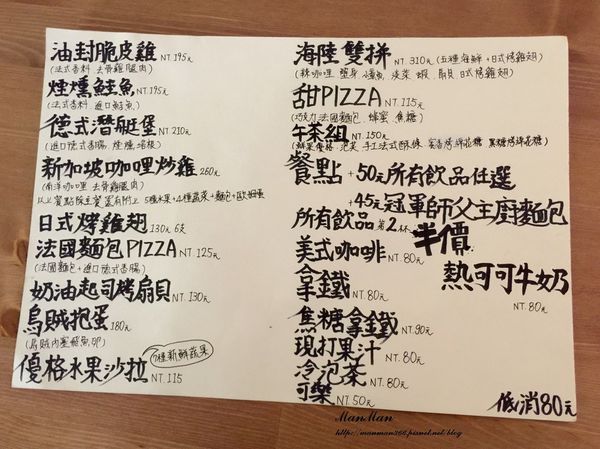 油封脆皮雞 NT.195元
(法式香料.去骨雞腿肉)
煙燻鮭魚 NT.195元
(法式香料.進口鮭魚)
德式潛艇堡 NT.210元
(進口德式香腸.煙燻培根)
新加坡咖哩炒雞 260元
(南洋咖哩.去骨雞腿肉)
以上餐點除主餐還有附上 5種水果+4種蔬菜+麵包+歐姆蛋
日式烤雞翅 130元 6支
法國麵包PIZZA NT.125元
(法國麵包+進口德式香腸)
奶油起司烤扇貝 NT.130元
烏賊抱蛋 180元
(烏賊內塞飛魚卵)
優格水果沙拉 NT.115
7種新鮮蔬果
海陸雙拼 NT.310元 (五種海鮮+日式烤雞翅)
甜PIZZA NT.115元
(巧克力.法國麵包.蜂蜜.焦糖)
午茶組 NT.150元
餐點 +50元所有飲品任選
+45元冠軍師父主廚麵包
所有飲品第2杯半價
美式咖啡 NT.80元
熱可可牛奶
NT.80元
拿鐵 NT.80元
焦糖拿鐵 NT.90元
現打果汁 NT.80元
冷泡茶 NT.80元
可樂 NT.50元
低消80元
ManMan
http://manman366.pixnet.net/blog